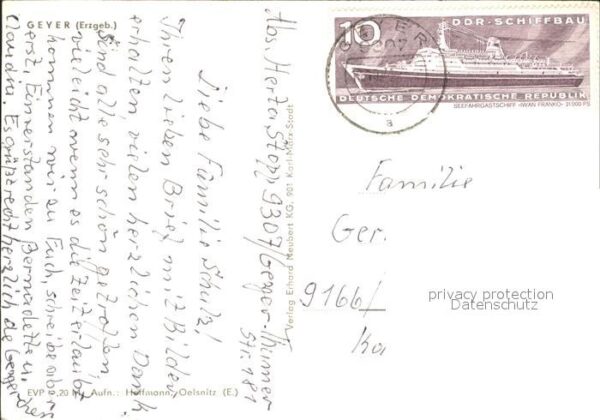 GEYER (Erzgeb.)
Abs. Herta Stopp 9307 Geyer-
Str. 181
Liebe Familie Schulz!
Ihren lieben Brief mit Bildern
erhalten vielen herzlichen Dank
sind alle sehr schön getroffen
vielleicht wenn es die Zeit erlaubt
kommen wir zu Euch, schreiben aber
erst, Einverstanden Bernadette u.
Claudia. Es grüßt recht herzlich die
EVP 0,20 Aufn.: Hoffmann, Oelsnitz (E.)
Verlag Erhard Neubert KG, 901 Karl-Marx-Stadt
10 DDR-SCHIFFBAU
DEUTSCHE DEMOKRATISCHE REPUBLIK
SEEFAHRGASTSCHIFF »IWAN FRANKO« 21000 PS
GEYER
a
Familie
Ger.
9166/
Ka
privacy protection
Datenschutz